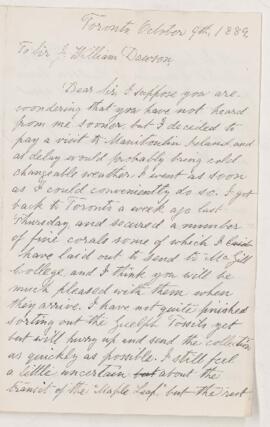 Toronto October 9th, 1889,
To Sir J. William Dawson,
Dear Sir, I suppose you are
wondering that you have not heard
from me sooner but I decided to
pay a visit to Manitoulin Island and
as delay would probably bring cold
changeable weather I went as soon
as I could conveniently do so. I got
back to Toronto a week ago last
Thursday and secured a number
of fine corals some of which I
have laid out to send to McGill
College and I think you will be
much pleased with them when
they arrive. I have not quite finished
sorting out the Guelph Fossils yet
but will hurry up and send the collection
as quickly as possible. I still feel
a little uncertain but about the
transit of the "Maple Leaf," but the rest